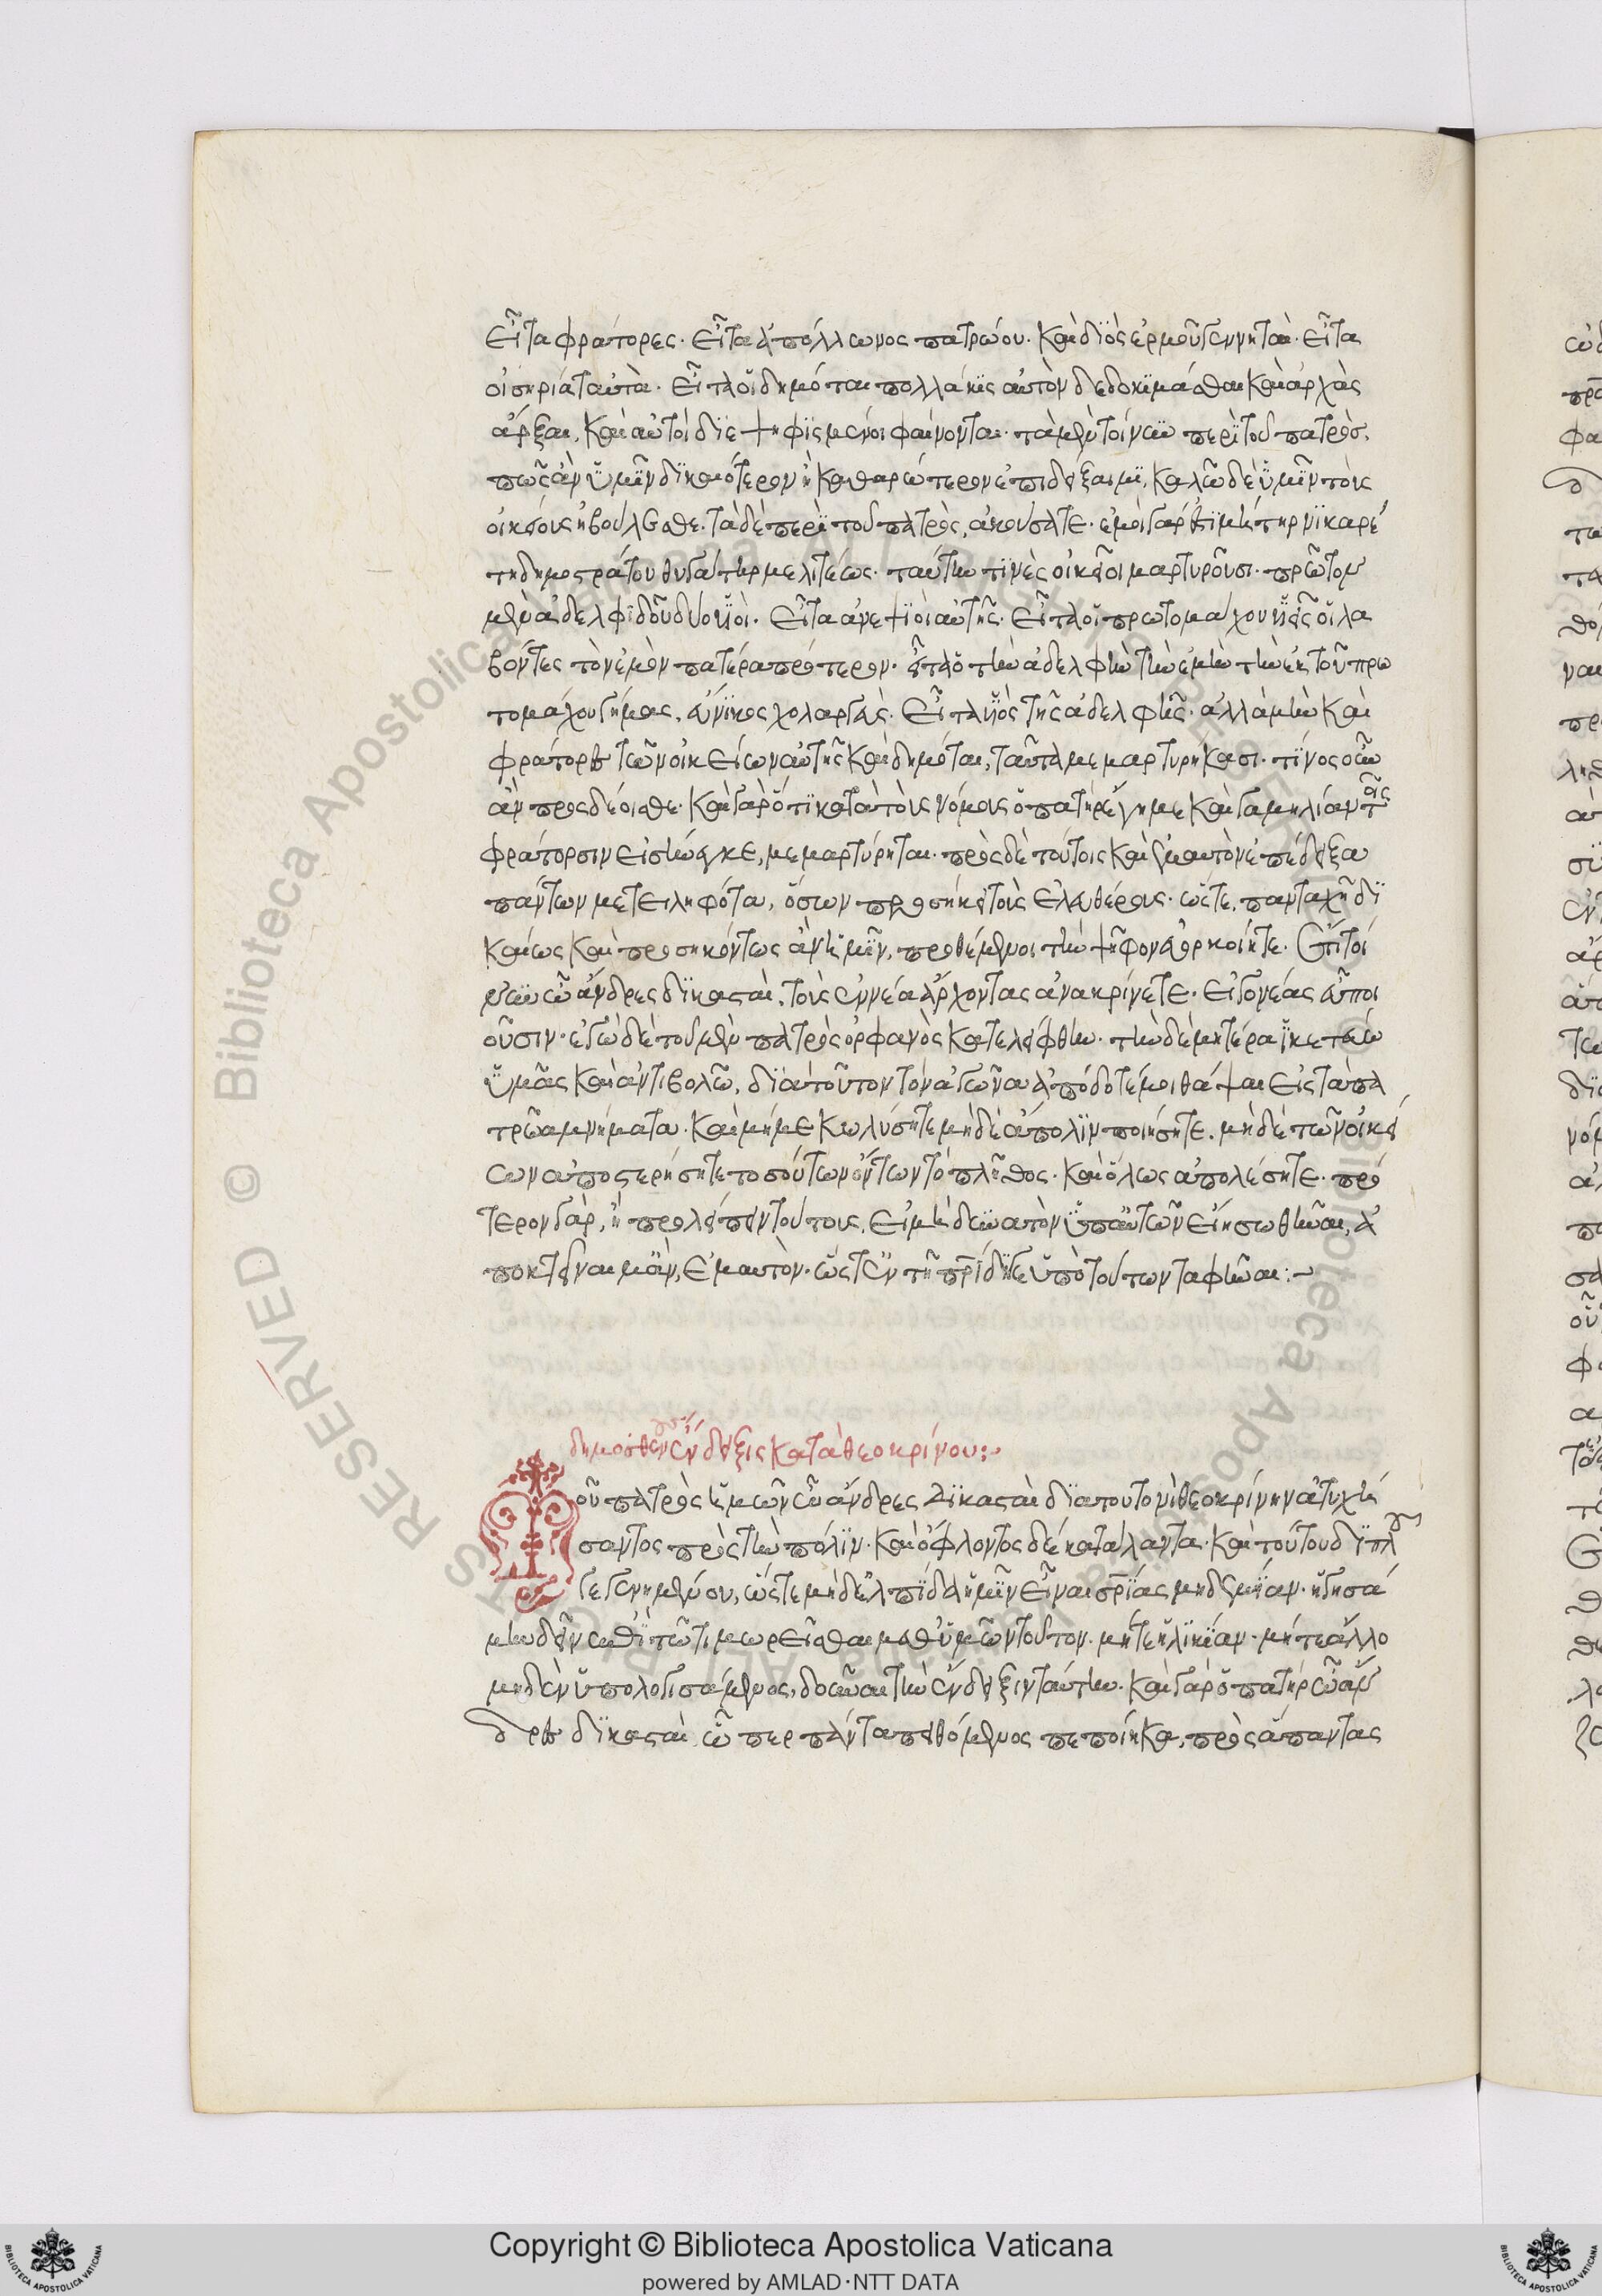 εἶτα φράτορες· εἶτα ἀπόλλωνος πατρώου· καὶ διὸς ἑρκείου γεννηταὶ· εἶτα
οἷς ἠρία ταὐτὰ· εἶτα οἱ δημόται πολλάκις αὐτὸν δεδοκιμάσθαι καὶ ἀρχὰς
ἄρξαι, καὶ αὐτοὶ διεψηφισμένοι φαίνονται· τὰ μὲν τοίνυν περὶ τοῦ πατρὸς,
πῶς ἂν ὑμῖν δικαιότερον ἢ καθαρώτερον ἐπιδείξαιμι, καλῶ δὲ ὑμῖν τοὺς
οἰκείους εἰ βούλεσθε· τὰ δὲ περὶ τοῦ πατρὸς, ἀκούσατε· ἐμοὶ γάρ ἐστι μήτηρ νικαρέ
τη δημοστράτου θυγάτηρ μελιτέως· ταύτην τίνες οἰκεῖοι μαρτυροῦσι· πρῶτον
μὲν ἀδελφιδοῦ δύο υἱοὶ· εἶτα ἀνεψιοὶ αὐτῆς· εἶτα οἱ πρωτομάχου υἱεῖς οἱ λα
βόντες τὸν ἐμὸν πατέρα πρότερον· εἶτα ὁ τὴν ἀδελφὴν τὴν ἐμὴν τὴν ἐκ τοῦ πρω
τομάχου γήμας, εὐνικος χολαργεὺς· εἶτα υἱὸς τῆς ἀδελφῆς· ἀλλὰ μὴν καὶ
φράτορες τῶν οἰκείων αὐτῆς καὶ δημόται, ταῦτα μεμαρτυρήκασι· τίνος οὖν
ἂν προσδέοισθε· καὶ γὰρ ὅτι κατὰ τοὺς νόμους ὁ πατὴρ ἔγημε καὶ γαμηλίαν τοῖς
φράτορσιν εἰσήνεγκε, μεμαρτύρηται· πρὸς δὲ τούτοις καὶ ἐμαυτὸν ἐπέδειξα
πάντων μετειληφότα, ὅσων προσήκει τοὺς ἐλευθέρους· ὥστε, πανταχῇ δι
καίως καὶ προσηκόντως ἂν ὑμῖν, προσθέμενοι τὴν ψῆφον εὐορκοίητε· ἔτι τοί
νυν ὦ ἄνδρες δικασταὶ, τοὺς ἐννέα ἄρχοντας ἀνακρίνετε· εἰ γονέας εὖ ποι
οῦσιν· ἐγὼ δὲ τοῦ μὲν πατρὸς ὀρφανὸς κατελείφθην· τὴν δὲ μητέρα ἱκετεύω
ὑμᾶς καὶ ἀντιβολῶ, διὰ τοῦτον τὸν ἀγῶνα ἀπόδοτέ μοι θάψαι εἰς τὰ πα
τρῶα μνήματα· καὶ μή με κωλύσητε μηδὲ ἄπολιν ποιήσητε· μηδὲ τῶν οἰκεί
ων ἀποστερήσητε τοσούτων ὄντων τὸ πλῆθος· καὶ ὅλως ἀπολέσητε· πρό
τερον γὰρ, ἢ προλείπειν τούτους, εἰ μὴ δυνατὸν ὑπ' αὐτῶν εἴη σωθῆναι, ἀ
ποκτείναιμ' ἂν, ἐμαυτὸν· ὥστ' ἐν τῇ πρίδι γε ὑπὸ τούτων ταφῆναι:~
δημοσθένους ἔνδειξις κατὰ θεοκρίνου:~
οῦ πατρὸς ἡμῶν ὦ ἄνδρες δικασταὶ διὰ τουτονὶ θεοκρίνην ἀτυχή
σαντος πρὸς τὴν πόλιν· καὶ ὀφλοντος δέκα τάλαντα· καὶ τούτου διπλοῦ
γεγενημένου, ὥστε μηδ' ἐλπίδα ἡμῖν εἶναι σρίας μηδεμίαν· ἡγησά
μην δεῖν ἐπὶ τῷ τιμωρεῖσθαι μεθ' ὑμῶν τοῦτον· μήτε ἡλικίαν· μήτε ἄλλο
μηδὲν ὑπολογισάμενος, δοῦναι τὴν ἔνδειξιν ταύτην· καὶ γὰρ ὁ πατὴρ ὦ ἄν
δρες δικασταὶ, ᾧπερ πάντα πειθόμενος πεποίηκα, πρὸς ἅπαντας
Copyright © Biblioteca Apostolica Vaticana
powered by AMLAD·NTT DATA